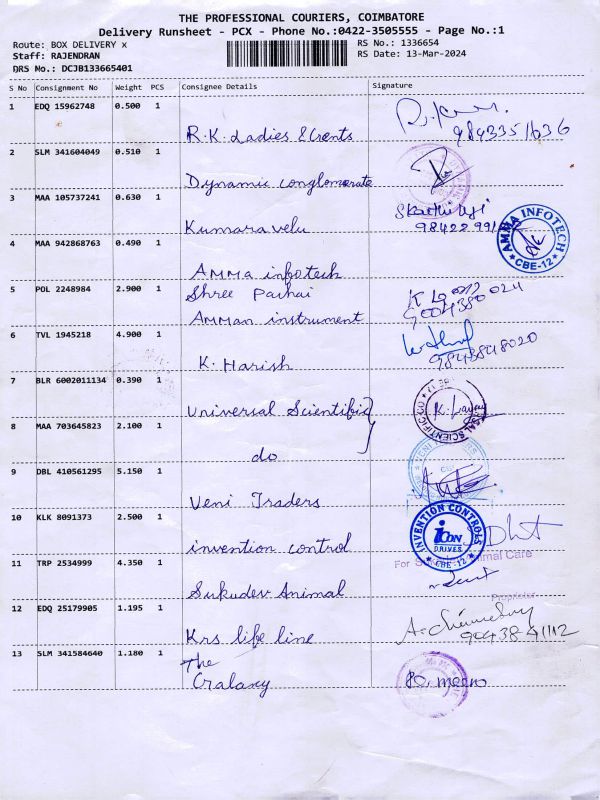 THE PROFESSIONAL COURIERS, COIMBATORE
Delivery Runsheet - PCX - Phone No.:0422-3505555 - Page No.:1
Route: BOX DELIVERY x
RS No.: 1336654
Staff: RAJENDRAN
RS Date: 13-Mar-2024
DRS No.: DCJB133665401
S No Consignment No Weight PCS Consignee Details Signature
1 EDQ 15962748 0.500 1
R.K. Ladies & Gents
2 SLM 341604049 0.510 1
Dynamic conglomerate
3 MAA 105737241 0.630 1
Kumaravelu
4 MAA 942868763 0.490 1
AMMA infotech
AMMA INFOTECH
CBE-12
5 POL 2248984 2.900 1
Shree
AMMan instrument
6 TVL 1945218 4.900 1
K. Harish
9843848020
7 BLR 6002011134 0.390 1
Universal Scientific
SCIENTIFIC CO
8 MAA 703645823 2.100 1
do
9 DBL 410561295 5.150 1
Veni Traders
10 KLK 8091373 2.500 1
invention control
INVENTION CONTROLS
iCON
D.R.I.V.E.S.
CBE-12
11 TRP 2534999 4.350 1
Sukudev Animal
For Animal Care
Proprietor
12 EDQ 25179905 1.195 1
Krs life line
13 SLM 341584640 1.180 1
The
Cralaxy